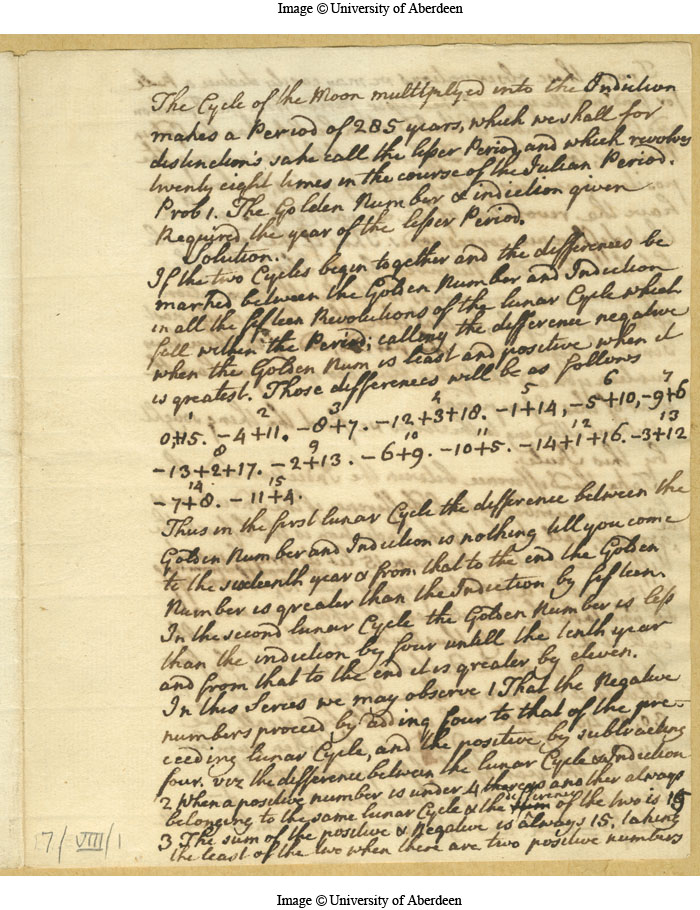 Image © University of Aberdeen
The Cycle of the Moon multiplyed into the Indiction
makes a Period of 285 years, which we shall for
distinction's sake call the lesser Period, and which revolves
twenty eight times in the course of the Julian Period.
Prob 1. The Golden Number & indiction given
Required the year of the lesser Period.
Solution.
If the two Cycles begin together and the differences be
marked between the Golden Number and Indiction
in all the fifteen Revolutions of the lunar Cycle which
fall within the Period; calling the difference negative
when the Golden Num is least and positive when it
is greatest. Those differences will be as follows
1 2 3 4 5 6 7
0,+15. -4+11. -8+7. -12+3+18. -1+14, -5+10, -9+6
8 9 10 11 12 13
-13+2+17. -2+13. -6+9. -10+5. -14+1+16. -3+12
14 15
-7+8. -11+4.
Thus in the first lunar Cycle the difference between the
Golden Number and Indiction is nothing till you come
to the sixteenth year & from that to the end the Golden
Number is greater than the Indiction by fifteen.
In the second lunar Cycle the Golden Number is less
than the indiction by four untill the tenth year
and from that to the end it is greater by eleven.
In this Series we may observe 1 That the Negative
numbers proceed by adding four to that of the pre-
ceeding lunar Cycle, and the positive by subtracting
four. viz the difference between the lunar Cycle & Indiction
2 When a positive number is under 4 there is another always
belonging to the same lunar Cycle & the difference of the two is 15
3 The sum of the positive & Negative is always 15. taking
the least of the two when there are two positive numbers
7/VIII/1
Image © University of Aberdeen